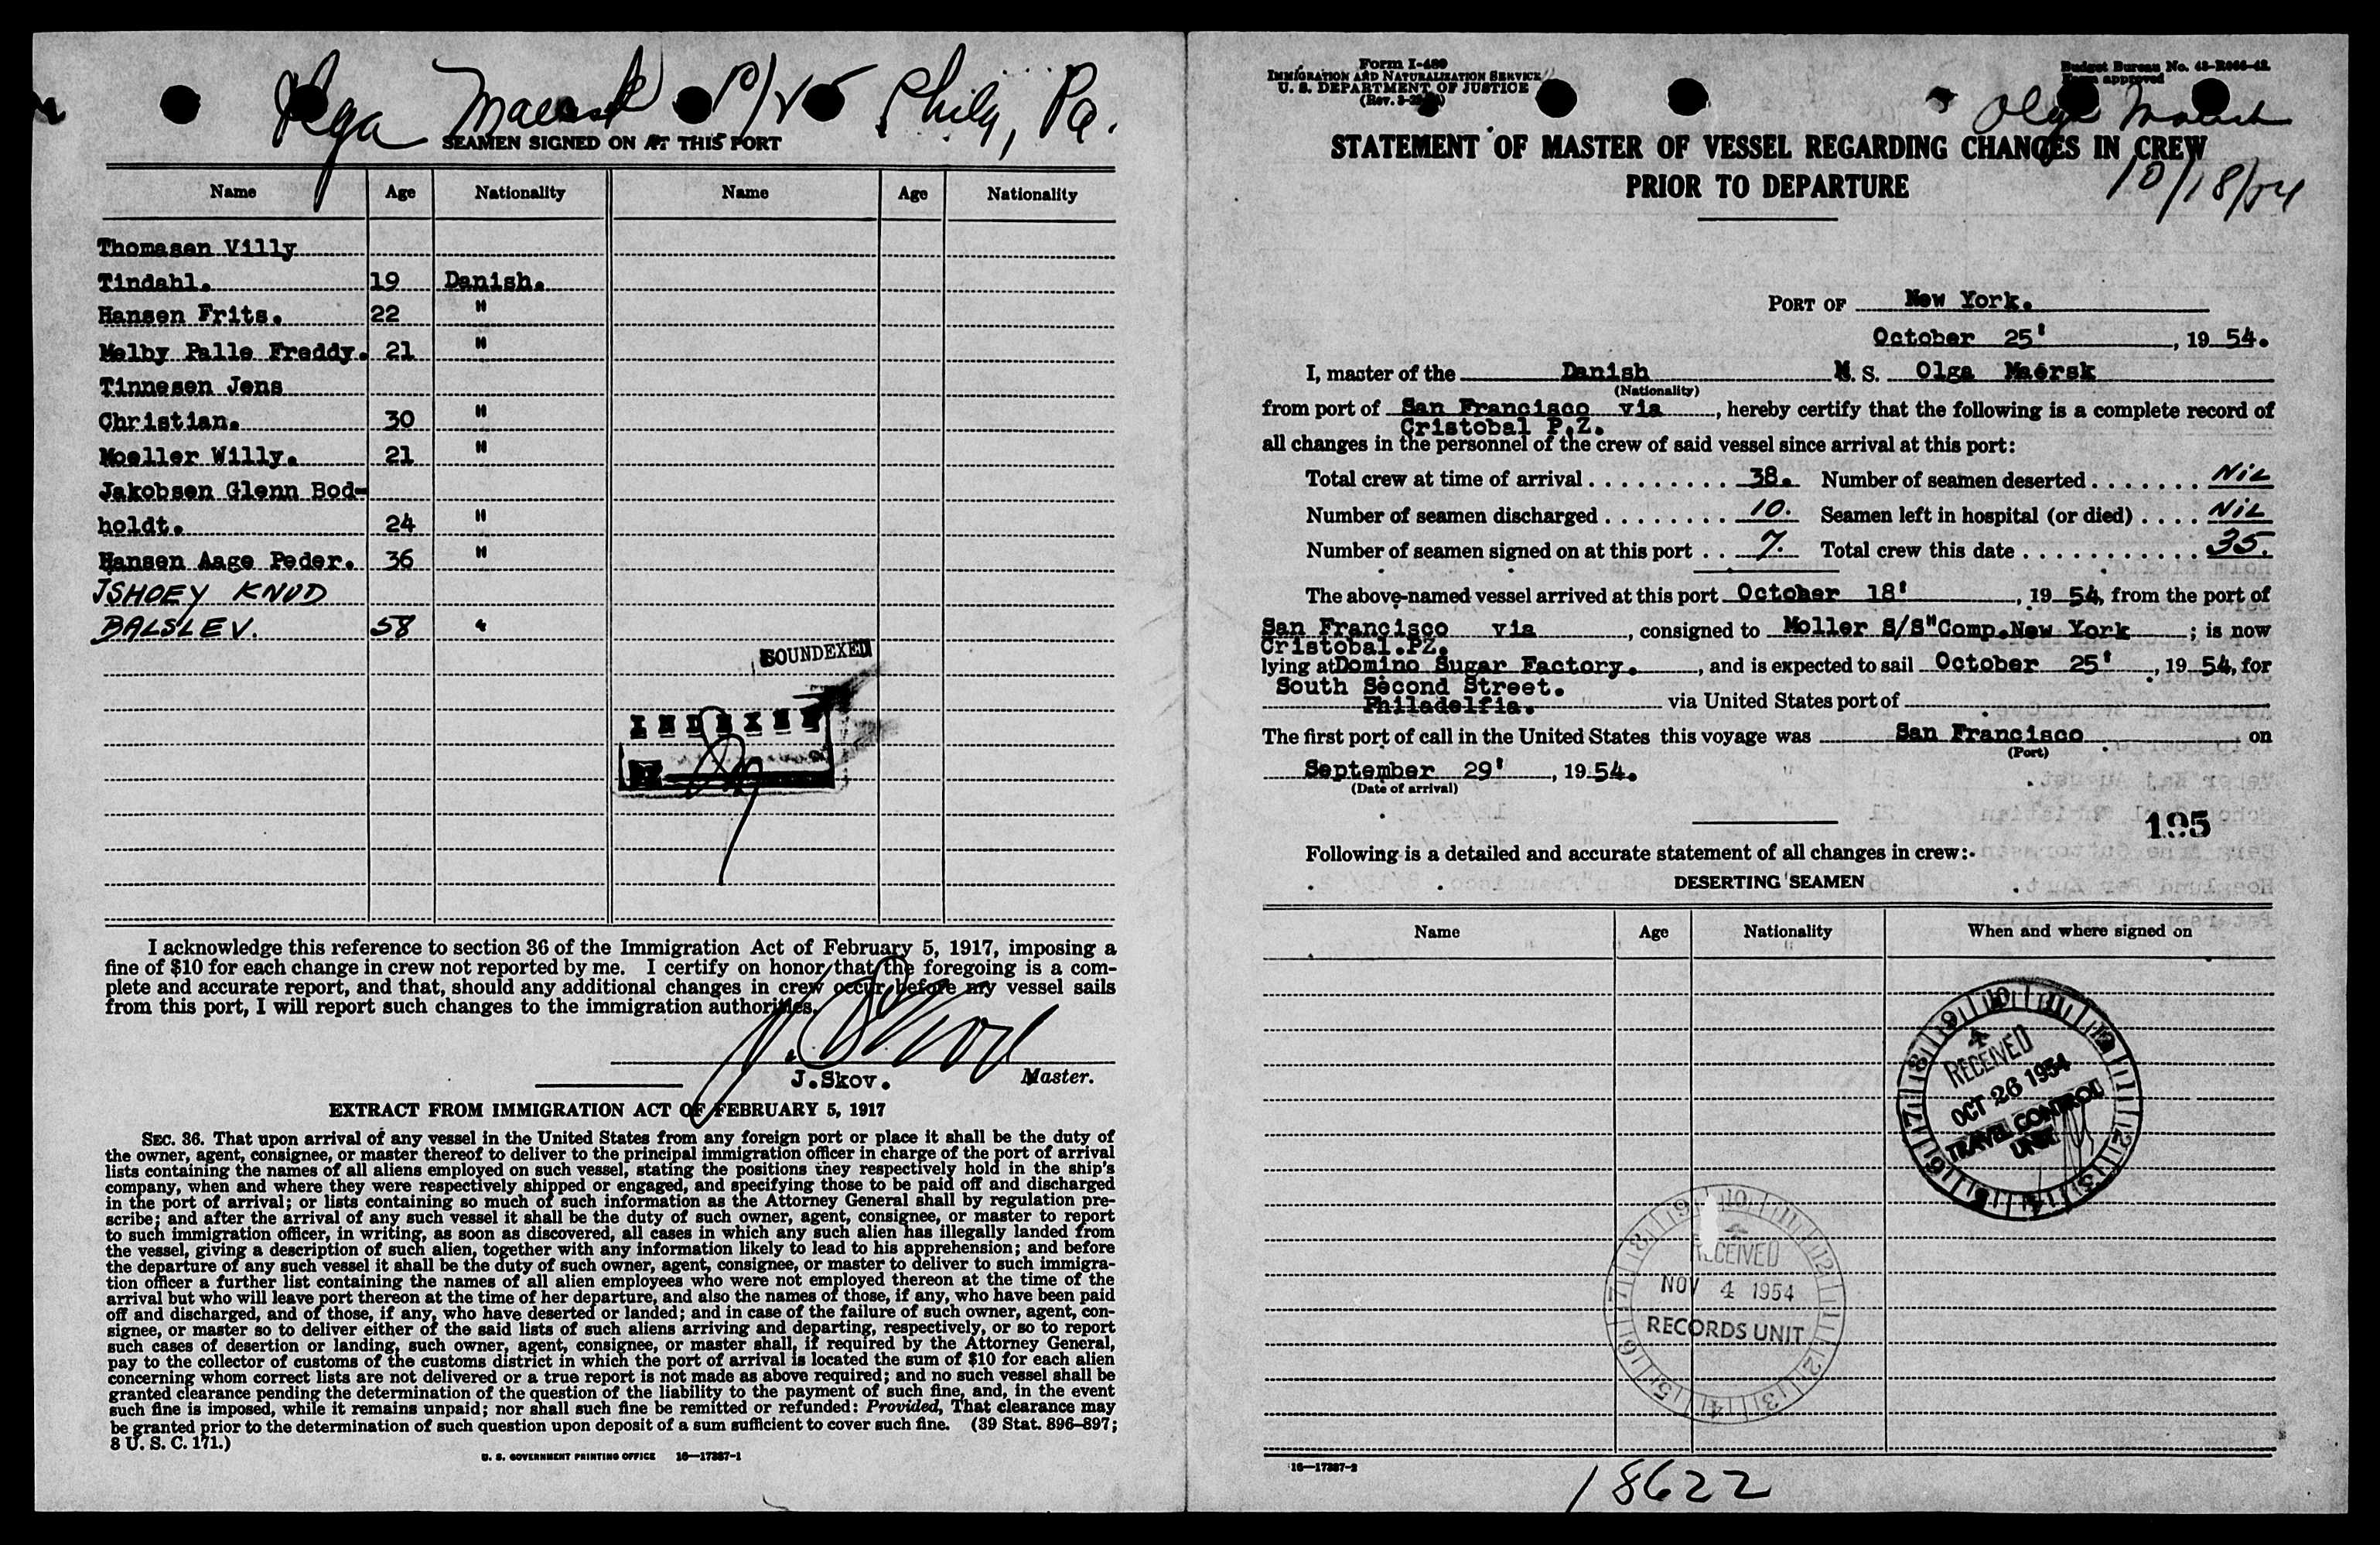 Olga Maersk Phily, Pa.
SEAMEN SIGNED ON AT THIS PORT
Name Age Nationality Name Age Nationality
Thomasen Villy
Tindahl. 19 Danish.
Hansen Frits. 22 "
Melby Palle Freddy. 21 "
Tinnesen Jens
Christian. 30 "
Moeller Willy. 21 "
Jakobsen Glenn Bod-
holdt. 24 "
Hansen Aage Peder. 36 "
JSHOEY KNUD
BALSLEV. 58 "
SOUNDEXED
INDEXED
I acknowledge this reference to section 36 of the Immigration Act of February 5, 1917, imposing a
fine of $10 for each change in crew not reported by me. I certify on honor that the foregoing is a com-
plete and accurate report, and that, should any additional changes in crew occur before my vessel sails
from this port, I will report such changes to the immigration authorities.
J. Skov
J.Skov. Master.
EXTRACT FROM IMMIGRATION ACT OF FEBRUARY 5, 1917
SEC. 36. That upon arrival of any vessel in the United States from any foreign port or place it shall be the duty of
the owner, agent, consignee, or master thereof to deliver to the principal immigration officer in charge of the port of arrival
lists containing the names of all aliens employed on such vessel, stating the positions they respectively hold in the ship's
company, when and where they were respectively shipped or engaged, and specifying those to be paid off and discharged
in the port of arrival; or lists containing so much of such information as the Attorney General shall by regulation pre-
scribe; and after the arrival of any such vessel it shall be the duty of such owner, agent, consignee, or master to report
to such immigration officer, in writing, as soon as discovered, all cases in which any such alien has illegally landed from
the vessel, giving a description of such alien, together with any information likely to lead to his apprehension; and before
the departure of any such vessel it shall be the duty of such owner, agent, consignee, or master to deliver to such immigra-
tion officer a further list containing the names of all alien employees who were not employed thereon at the time of the
arrival but who will leave port thereon at the time of her departure, and also the names of those, if any, who have been paid
off and discharged, and of those, if any, who have deserted or landed; and in case of the failure of such owner, agent, con-
signee, or master so to deliver either of the said lists of such aliens arriving and departing, respectively, or so to report
such cases of desertion or landing, such owner, agent, consignee, or master shall, if required by the Attorney General,
pay to the collector of customs of the customs district in which the port of arrival is located the sum of $10 for each alien
concerning whom correct lists are not delivered or a true report is not made as above required; and no such vessel shall be
granted clearance pending the determination of the question of the liability to the payment of such fine, and, in the event
such fine is imposed, while it remains unpaid; nor shall such fine be remitted or refunded: Provided, That clearance may
be granted prior to the determination of such question upon deposit of a sum sufficient to cover such fine. (39 Stat. 896-897;
8 U. S. C. 171.)
U. S. GOVERNMENT PRINTING OFFICE 16—17387-1
Form I-489
IMMIGRATION AND NATURALIZATION SERVICE
U. S. DEPARTMENT OF JUSTICE
Budget Bureau No. 43-R066-42
Form approved
Olga Maersk
10/18/54
STATEMENT OF MASTER OF VESSEL REGARDING CHANGES IN CREW
PRIOR TO DEPARTURE
PORT OF New York.
October 25', 19 54.
I, master of the Danish M. S. Olga Maersk
(Nationality)
from port of San Francisco via, hereby certify that the following is a complete record of
Cristobal P.Z.
all changes in the personnel of the crew of said vessel since arrival at this port:
Total crew at time of arrival 38. Number of seamen deserted NiL
Number of seamen discharged 10. Seamen left in hospital (or died) NiL
Number of seamen signed on at this port 7. Total crew this date 35.
The above-named vessel arrived at this port October 18', 19 54, from the port of
San Francisco via, consigned to Moller S/S"Comp.New York; is now
Cristobal.PZ.
lying at Domino Sugar Factory., and is expected to sail October 25', 19 54, for
South Second Street.
Philadelfia. via United States port of
The first port of call in the United States this voyage was San Francisco on
(Port)
September 29', 19 54.
(Date of arrival)
195
Following is a detailed and accurate statement of all changes in crew:
DESERTING SEAMEN
Name Age Nationality When and where signed on
RECEIVED
OCT 26 1954
TRAVEL CONTROL
UNIT
RECEIVED
NOV 4 1954
RECORDS UNIT
16—17387-2
18622